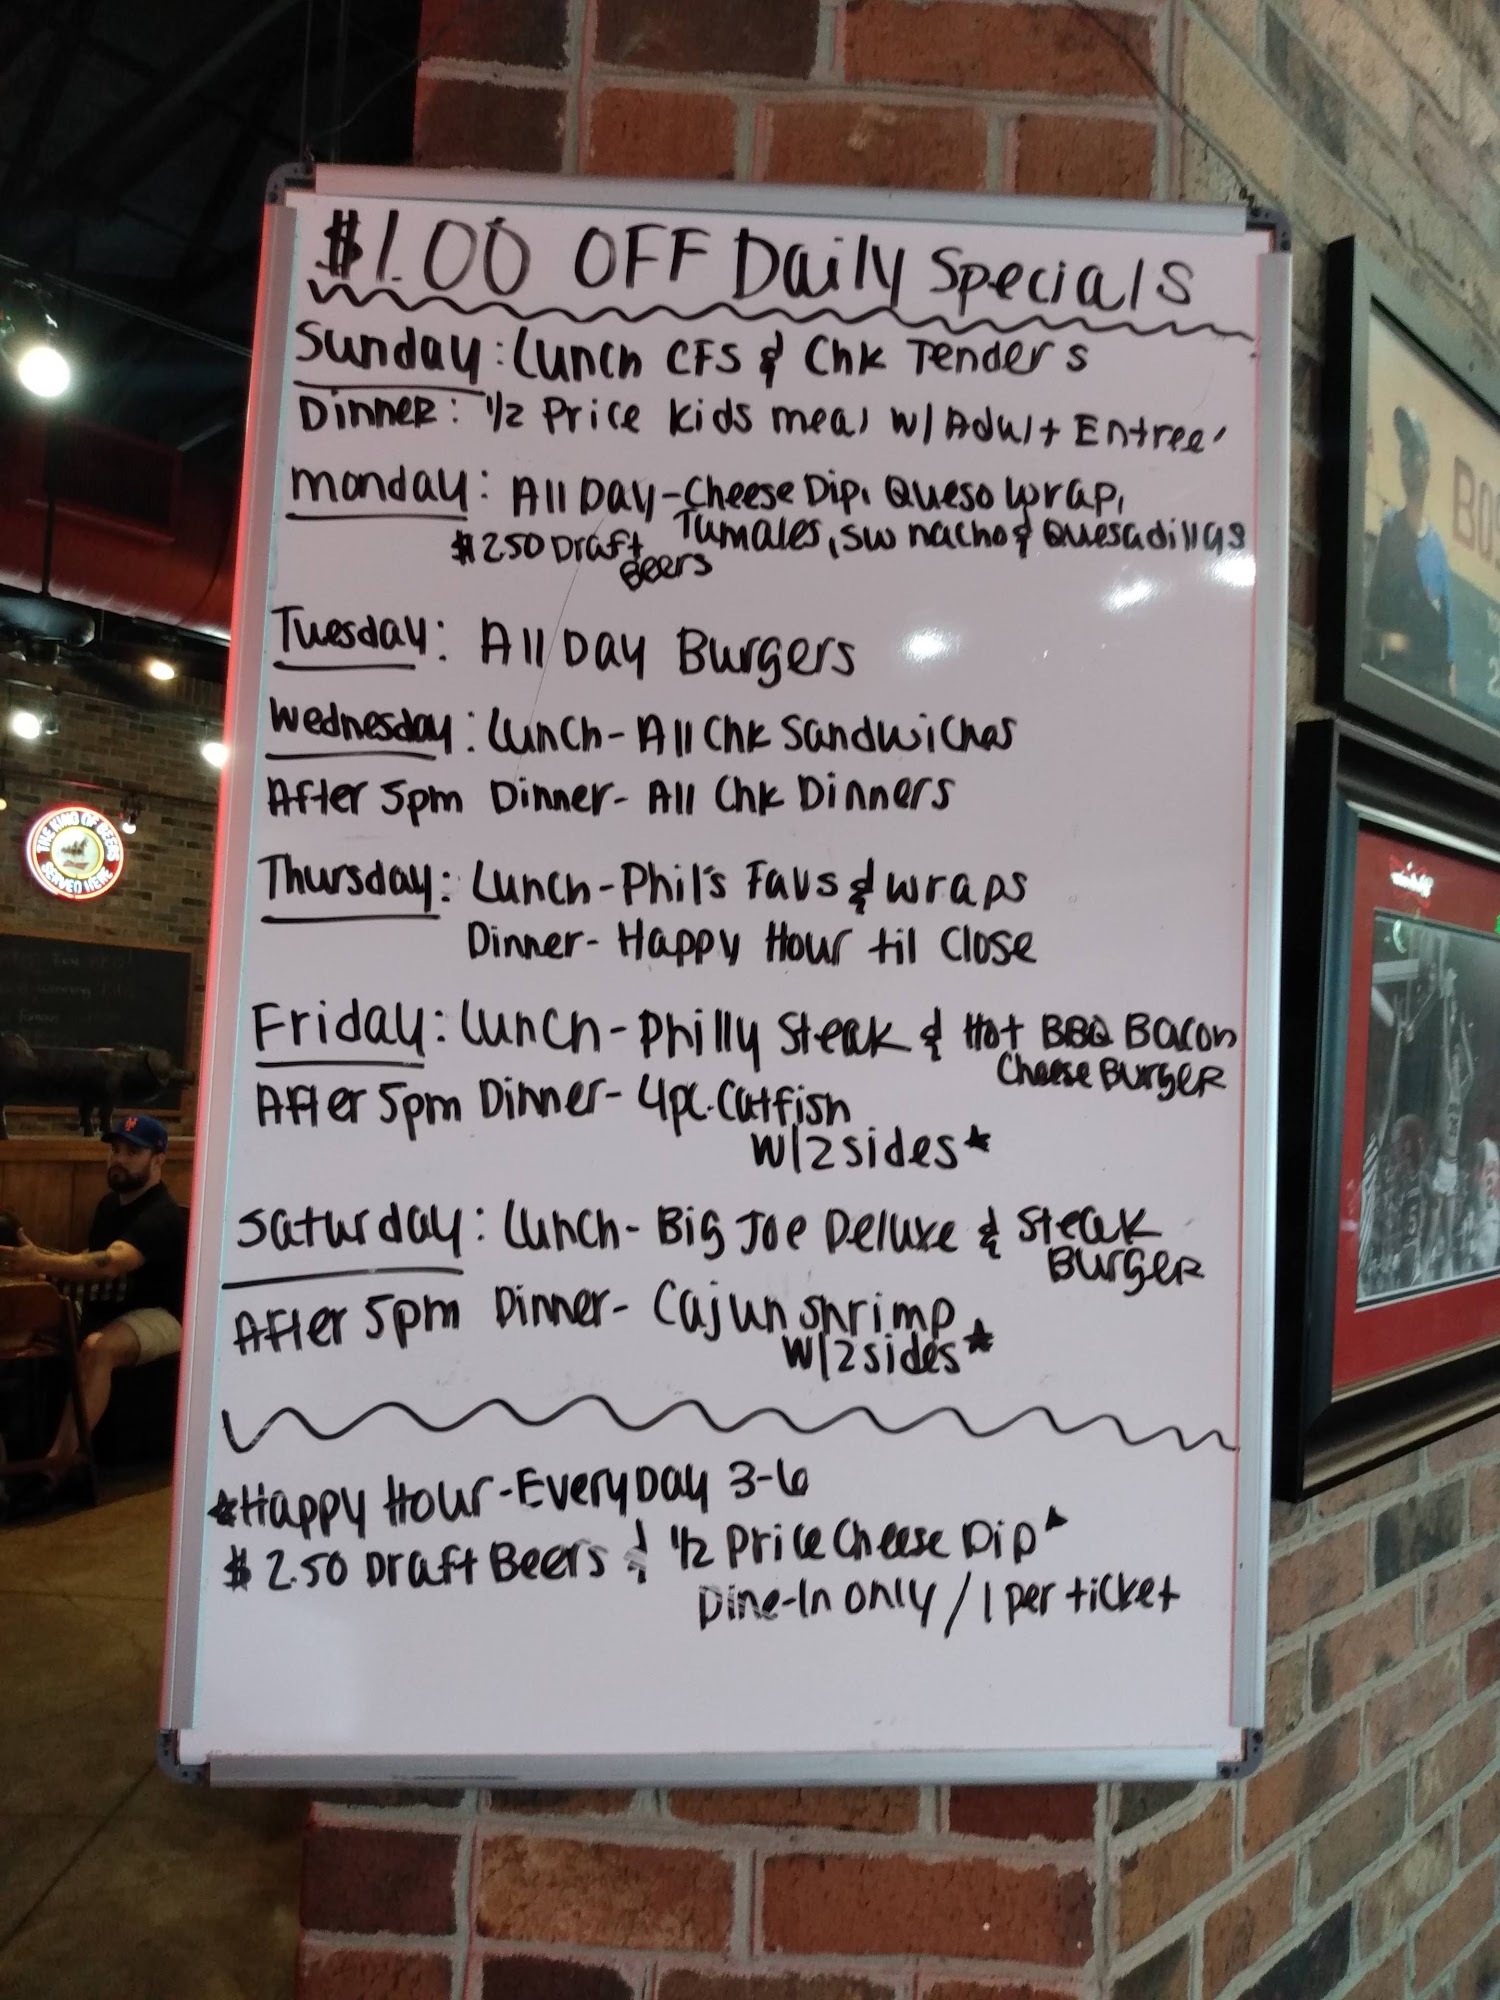 $1.00 OFF Daily Specials
Sunday: Lunch CFS & Chk Tenders
Dinner: 1/2 Price Kids meal w/ Adult Entree'
Monday: All Day-Cheese Dip, Queso Wrap,
Tamales, SW nacho & Quesadillas
$2.50 Draft
Beers
Tuesday: All Day Burgers
Wednesday: Lunch- All Chk Sandwiches
After 5pm Dinner- All Chk Dinners
Thursday: Lunch-Phil's Favs & wraps
Dinner- Happy Hour til Close
Friday: Lunch-Philly Steak & Hot BBQ Bacon
Cheese Burger
After 5pm Dinner- 4pc. Catfish
W/2 sides*
Saturday: Lunch- Big Joe Deluxe & Steak
Burger
After 5pm Dinner- Cajun Shrimp
W/2 sides*
*Happy Hour-Every Day 3-6
$2.50 Draft Beers & 1/2 Price Cheese Dip*
Dine-In only / 1 per ticket
THE KING OF BEERS
SERVED HERE
BOS